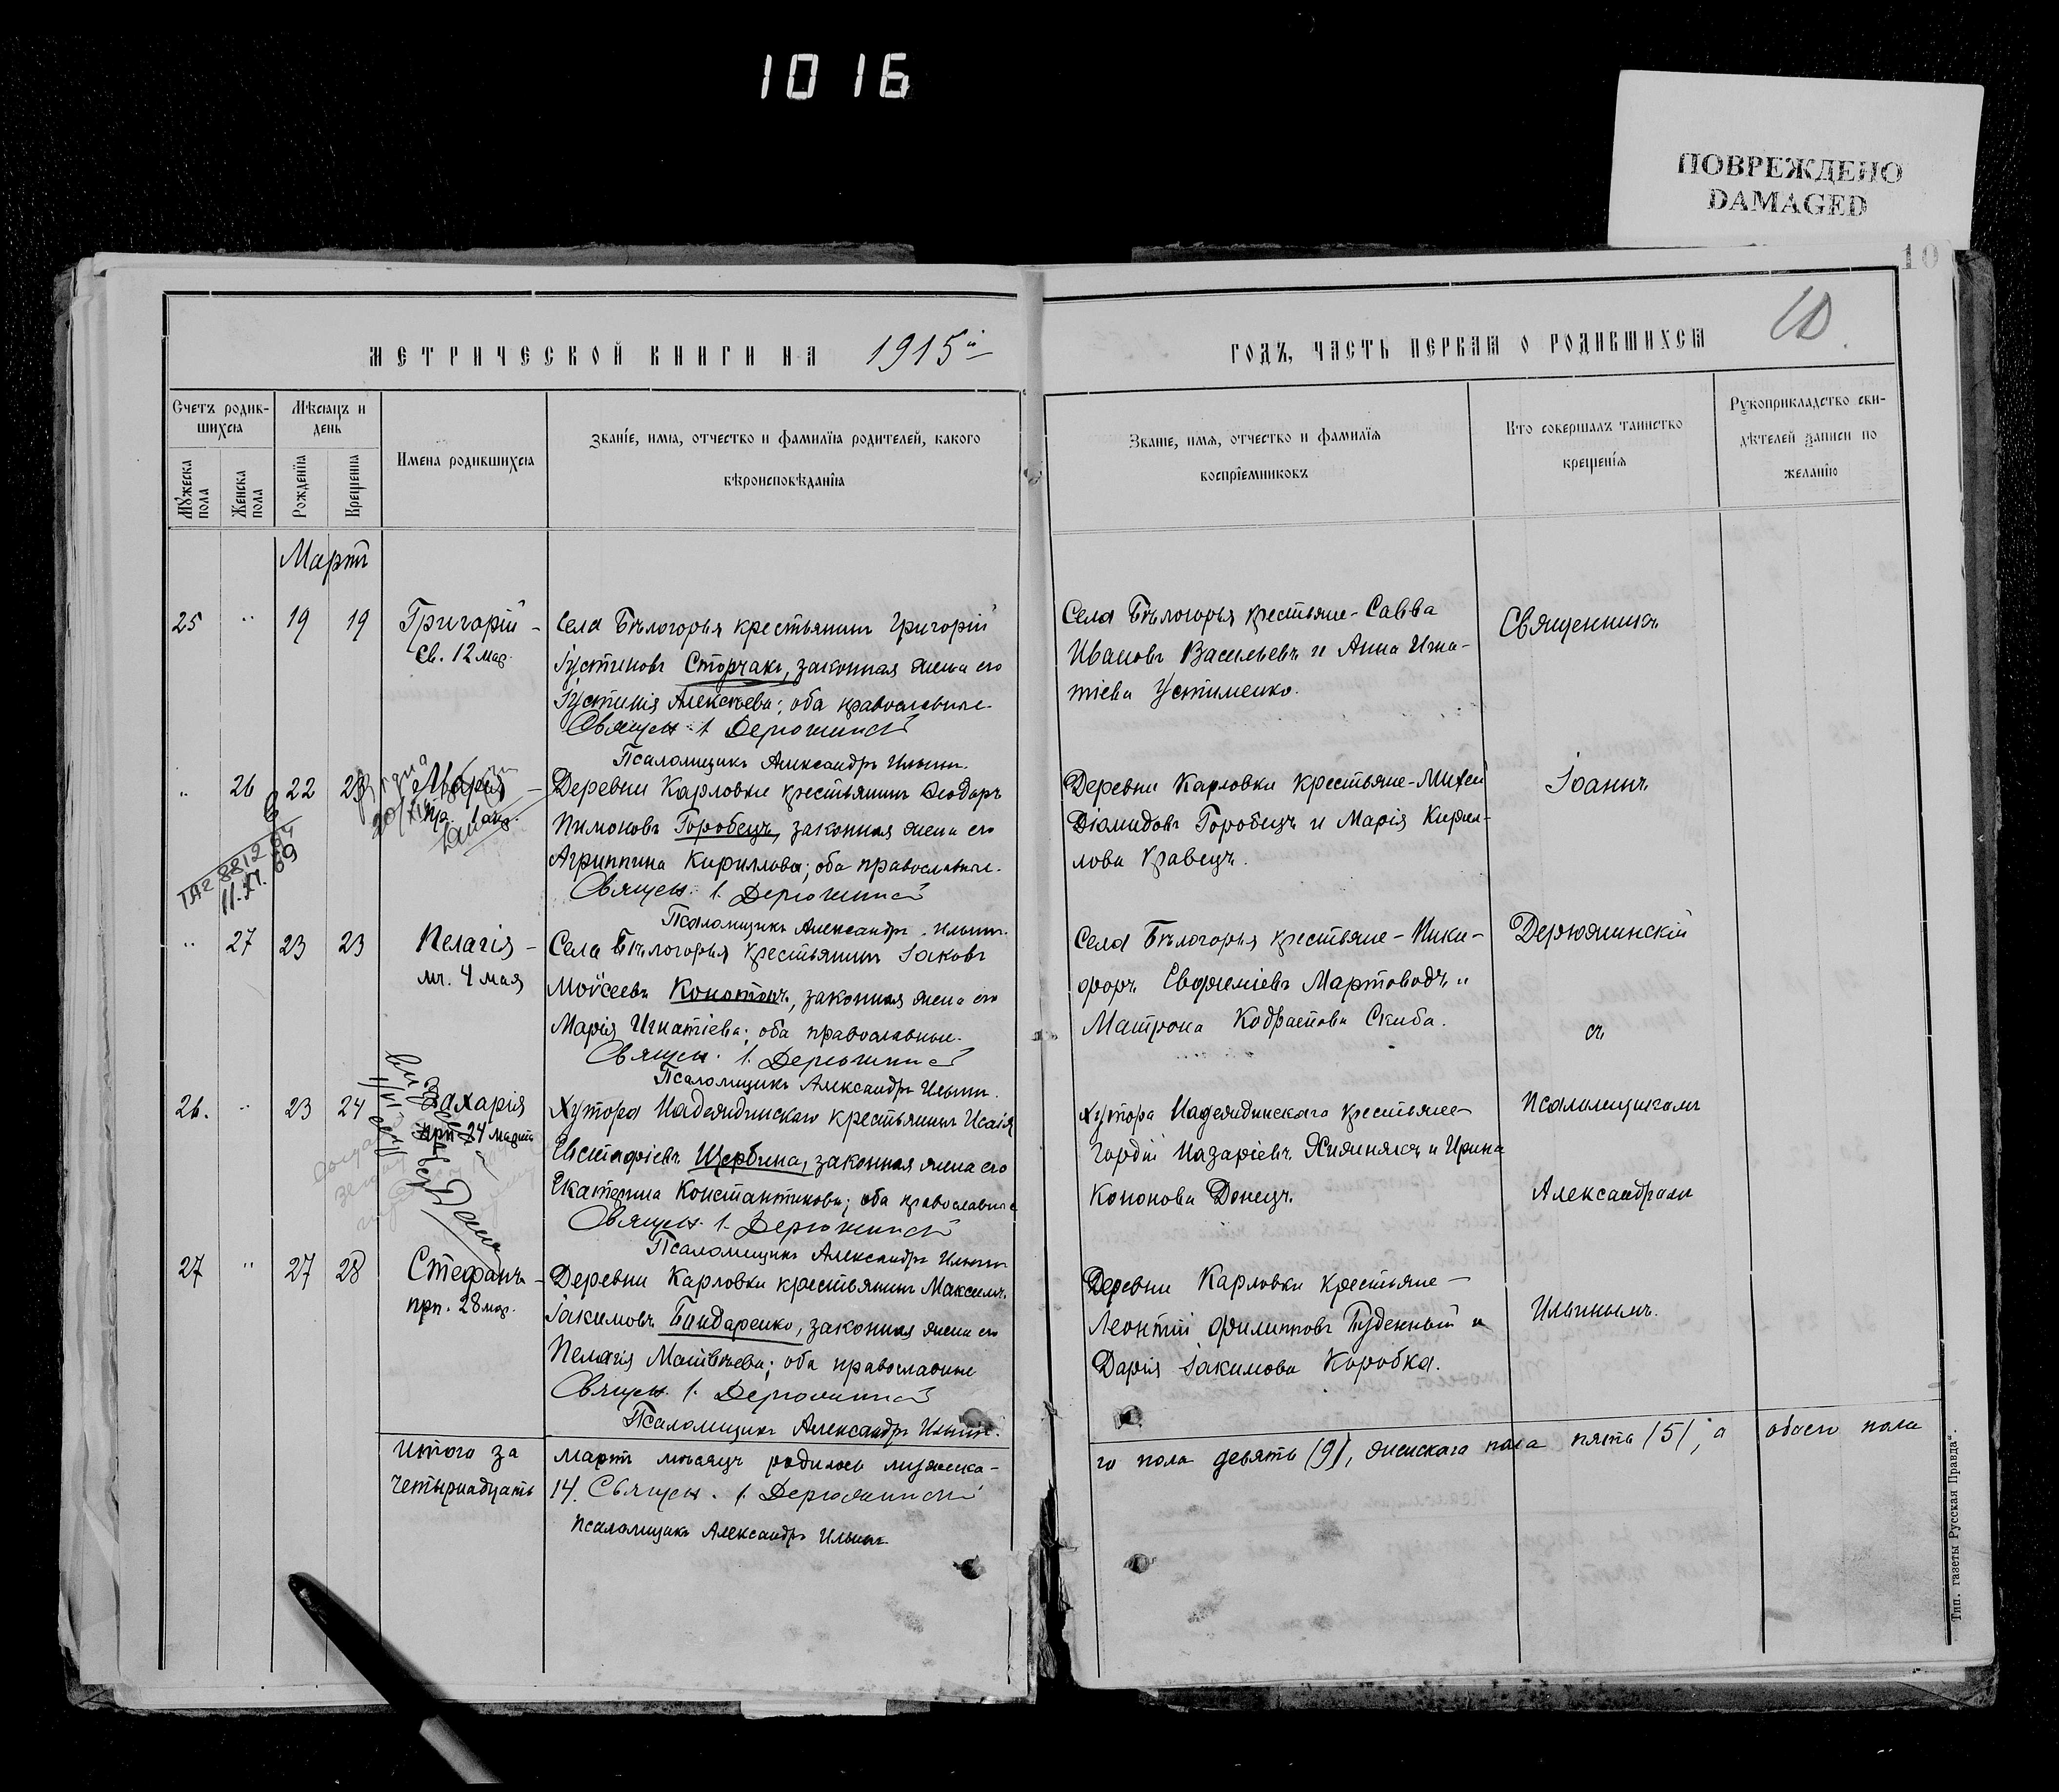 10 16
ПОВРЕЖДЕНО
DAMAGED
10
10
МЕТРИЧЕСКОЙ КНИГИ НА 1915й
ГОДЪ, ЧАСТЬ ПЕРВАЯ О РОДИВШИХСЯ
Счетъ родив-
шихся
Мѣсяцъ и
день
Мужеска пола
Женска пола
Рожденія
Крещенія
Имена родившихся
Званіе, имя, отчество и фамилія родителей, какого
вѣроисповѣданія
Званіе, имя, отчество и фамилія
воспріемниковъ
Кто совершалъ таинство
крещенія
Рукоприкладство сви-
дѣтелей записи по
желанію
Мартъ
25 " 19 19 Григорій -
св. 12 мар.
Села Бѣлогорья крестьянинъ Григорій
Іустиновъ Сторчакъ, законная жена его
Іустинія Алексѣева; оба православные.
Священ. І. Дерюжинскій
Псаломщикъ Александръ Ильинъ.
Села Бѣлогорья крестьяне - Савва
Ивановъ Васильевъ и Анна Игна-
тіева Устименко.
Священникъ
" 26 22 23 Марія -
пр. 1 апр.
ТАГ 881264
11.XI.69
Деревни Карловки крестьянинъ Ѳеодоръ
Пимоновъ Горобецъ, законная жена его
Агриппина Кириллова; оба православные.
Священ. І. Дерюжинскій
Псаломщикъ Александръ Ильинъ.
Деревни Карловки крестьяне - Михей
Діомидовъ Горобецъ и Марія Кирил-
лова Кравецъ.
Іоаннъ
" 27 23 23 Пелагія -
мч. 4 мая
Села Бѣлогорья крестьянинъ Іаковъ
Моѵсеевъ Конотопъ, законная жена его
Марія Игнатіева; оба православные.
Священ. І. Дерюжинскій
Псаломщикъ Александръ Ильинъ.
Села Бѣлогорья крестьяне - Ники-
форъ Евфиміевъ Мартоводъ и
Матрона Кодратова Скиба.
Дерюжинскій
съ
26. " 23 24 Захарія
прп. 24 марта
Хутора Надеждинскаго крестьянинъ Исаія
Евстафіевъ Щербина, законная жена его
Екатерина Константинова; оба православные
Священ. І. Дерюжинскій
Псаломщикъ Александръ Ильинъ
Хутора Надеждинскаго крестьяне
Гордій Назаріевъ Хижнякъ и Ирина
Кононова Донецъ.
псаломщикомъ
Александромъ
27 " 27 28 Стефанъ -
прп. 28 мар.
Деревни Карловки крестьянинъ Максимъ
Іакимовъ Бондаренко, законная жена его
Пелагія Матвѣева; оба православные
Священ. І. Дерюжинскій
Псаломщикъ Александръ Ильинъ.
Деревни Карловки крестьяне -
Леонтій Филипповъ Буденный и
Дарія Іакимова Коробка.
Ильинымъ.
Итого за мартъ мѣсяцъ родилось мужска-
го пола девять /9/, женскаго пола пять /5/, а обоего пола
четырнадцать 14. Священ. І. Дерюжинскій
Псаломщикъ Александръ Ильинъ.
Тип. газеты „Русская Правда“.